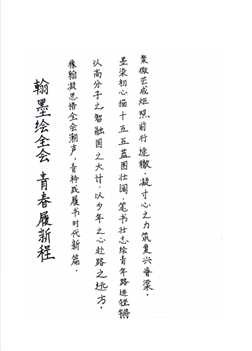 翰墨绘全会 青春履新程
椽翰凝思悟全会潮声，青衿践履书时代新篇。
以高分子之智融国之大计，以少年之心赴路之远方。
墨染初心描十五五蓝图壮阔，笔书壮志绘青年路途铿锵
聚微芒成炬照前行途辙，凝寸心之力筑复兴脊梁。